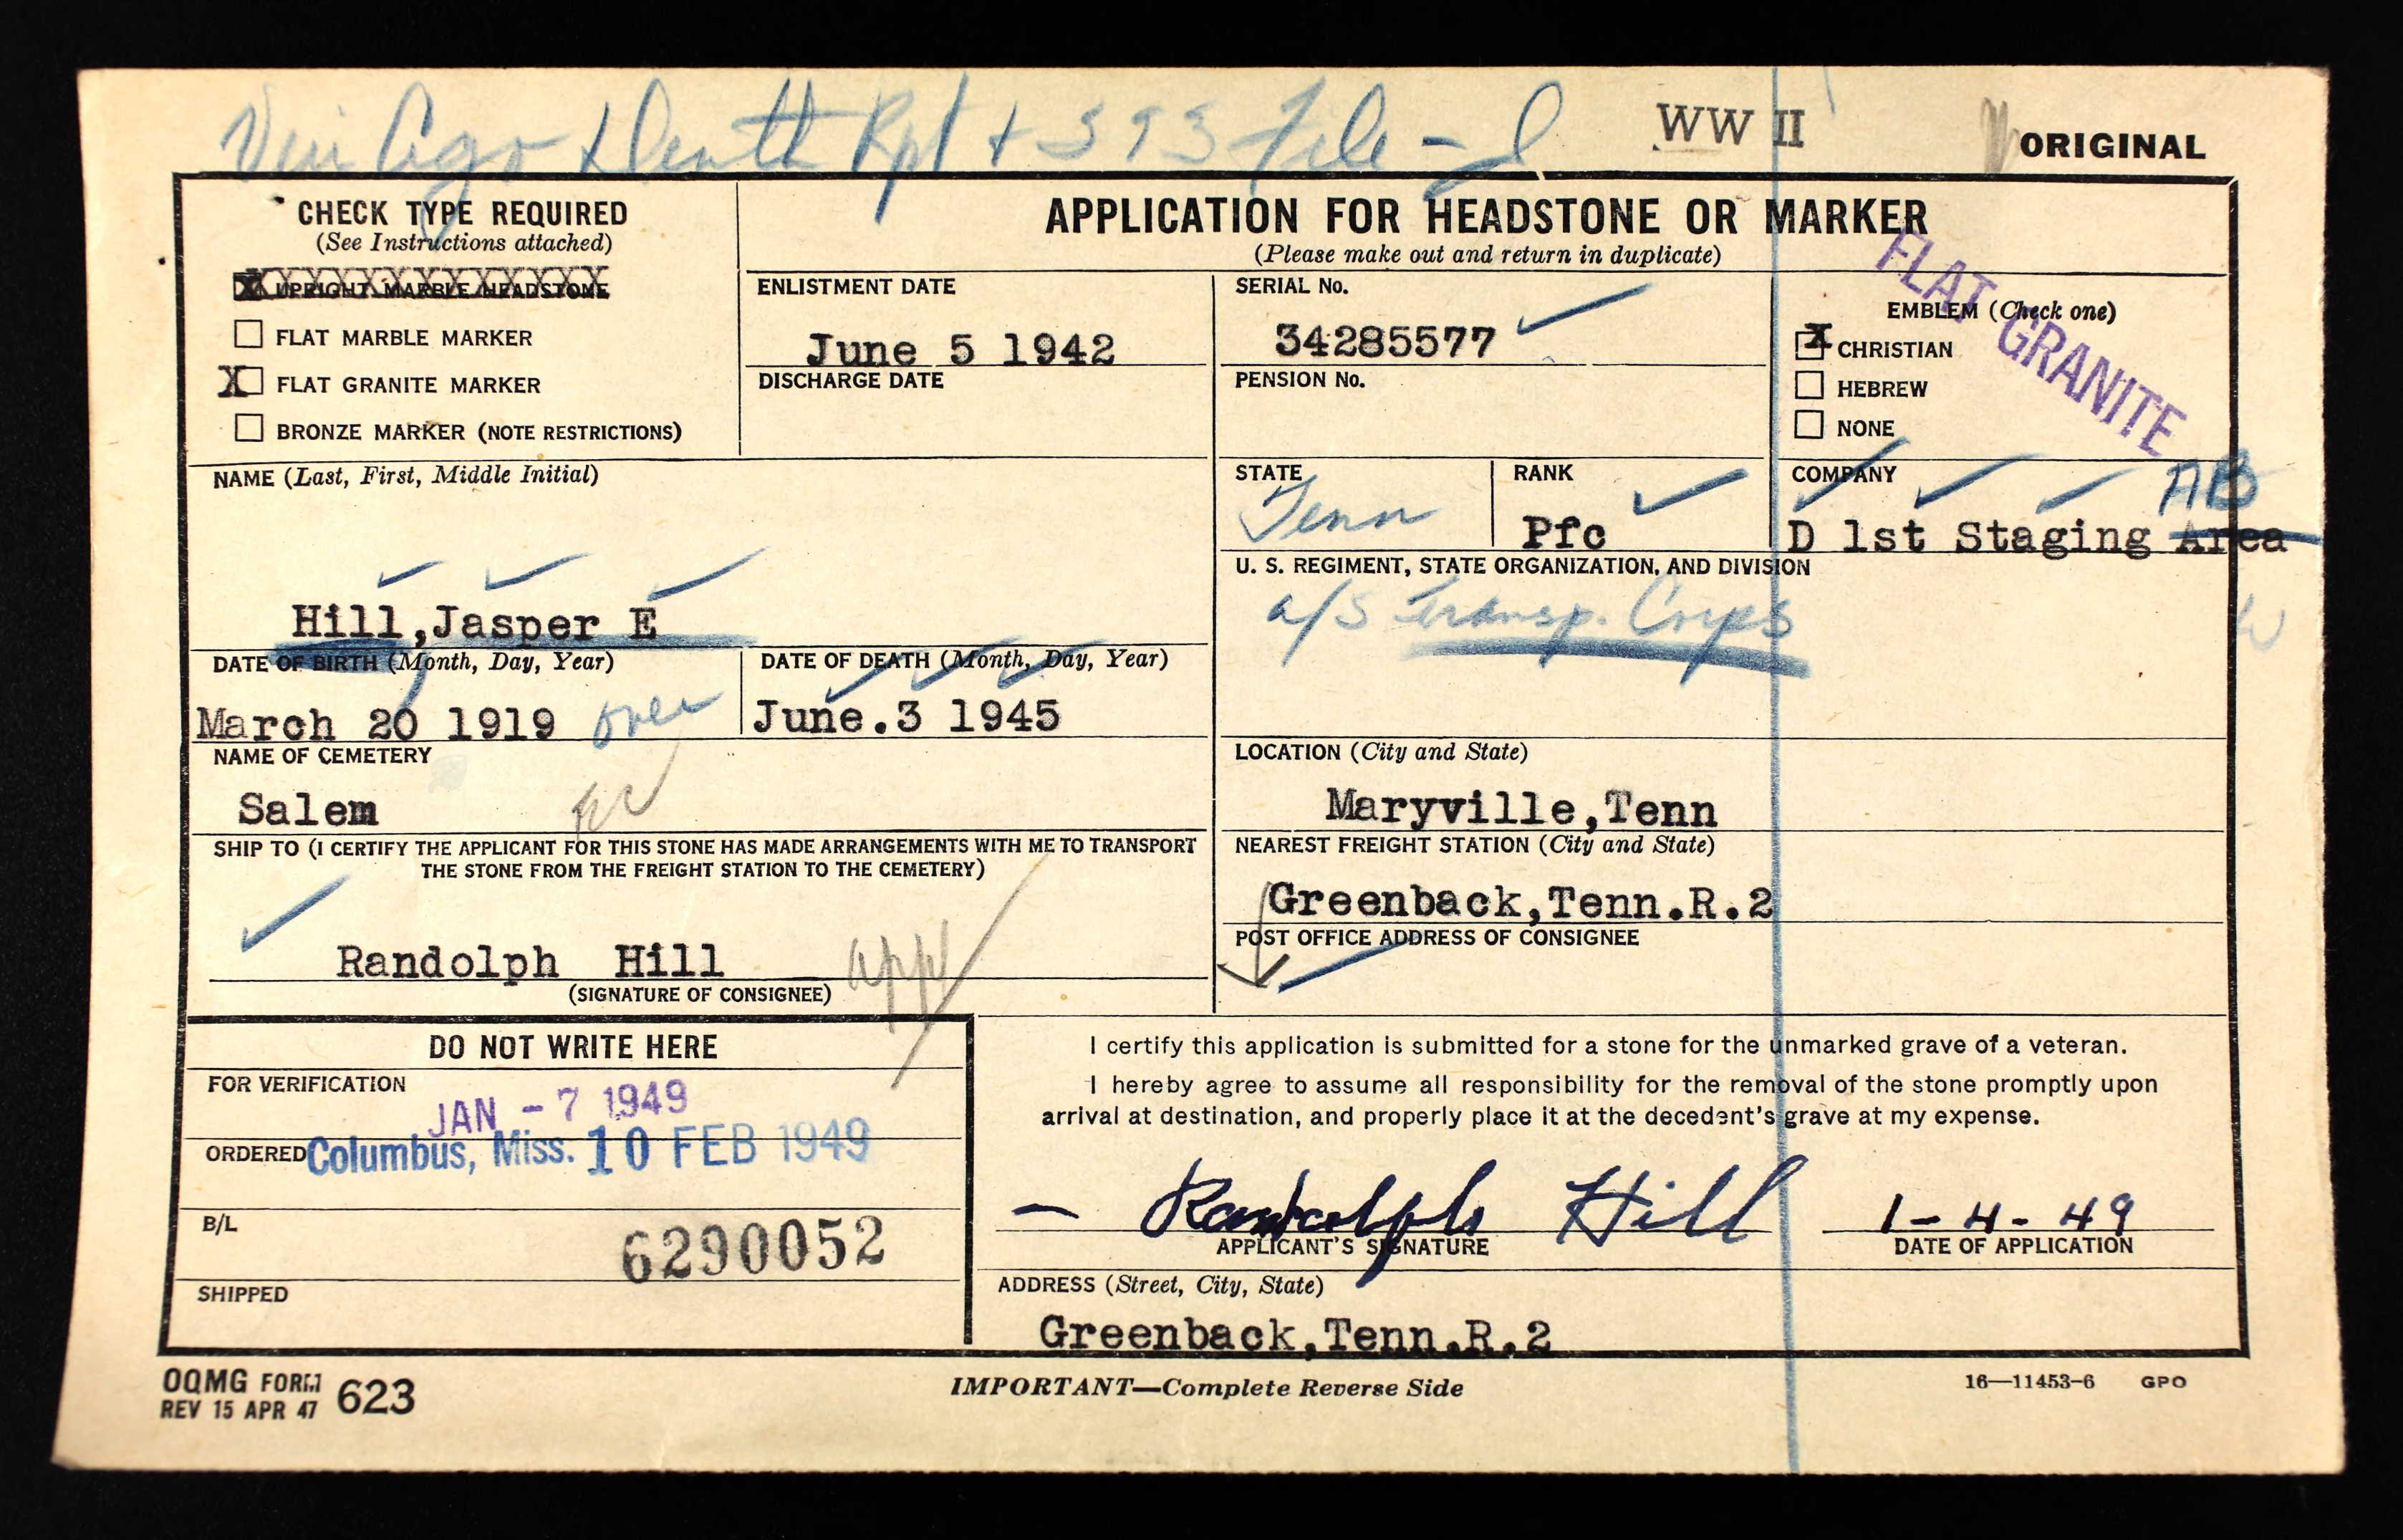 Death Rpt + 393 File -
WW II
ORIGINAL
CHECK TYPE REQUIRED
(See Instructions attached)
X UPRIGHT MARBLE HEADSTONE
FLAT MARBLE MARKER
X FLAT GRANITE MARKER
BRONZE MARKER (NOTE RESTRICTIONS)
APPLICATION FOR HEADSTONE OR MARKER
(Please make out and return in duplicate)
ENLISTMENT DATE
June 5 1942
DISCHARGE DATE
SERIAL No.
34285577
PENSION No.
FLAT GRANITE
EMBLEM (Check one)
X CHRISTIAN
HEBREW
NONE
NAME (Last, First, Middle Initial)
Hill,Jasper E
STATE
Tenn
RANK
Pfc
COMPANY
AB
D 1st Staging Area
U. S. REGIMENT, STATE ORGANIZATION, AND DIVISION
a/s Transp. Corps
DATE OF BIRTH (Month, Day, Year)
March 20 1919 over
DATE OF DEATH (Month, Day, Year)
June.3 1945
NAME OF CEMETERY
Salem
LOCATION (City and State)
Maryville,Tenn
SHIP TO (I CERTIFY THE APPLICANT FOR THIS STONE HAS MADE ARRANGEMENTS WITH ME TO TRANSPORT
THE STONE FROM THE FREIGHT STATION TO THE CEMETERY)
Randolph Hill
appl
(SIGNATURE OF CONSIGNEE)
NEAREST FREIGHT STATION (City and State)
Greenback,Tenn.R.2
POST OFFICE ADDRESS OF CONSIGNEE
DO NOT WRITE HERE
FOR VERIFICATION
JAN -7 1949
ORDERED Columbus, Miss. 10 FEB 1949
B/L
6290052
SHIPPED
I certify this application is submitted for a stone for the unmarked grave of a veteran.
I hereby agree to assume all responsibility for the removal of the stone promptly upon
arrival at destination, and properly place it at the decedent's grave at my expense.
Randolph Hill 1-4-49
APPLICANT'S SIGNATURE DATE OF APPLICATION
ADDRESS (Street, City, State)
Greenback,Tenn.R.2
OQMG FORM 623
REV 15 APR 47
IMPORTANT—Complete Reverse Side
16—11453-6 GPO